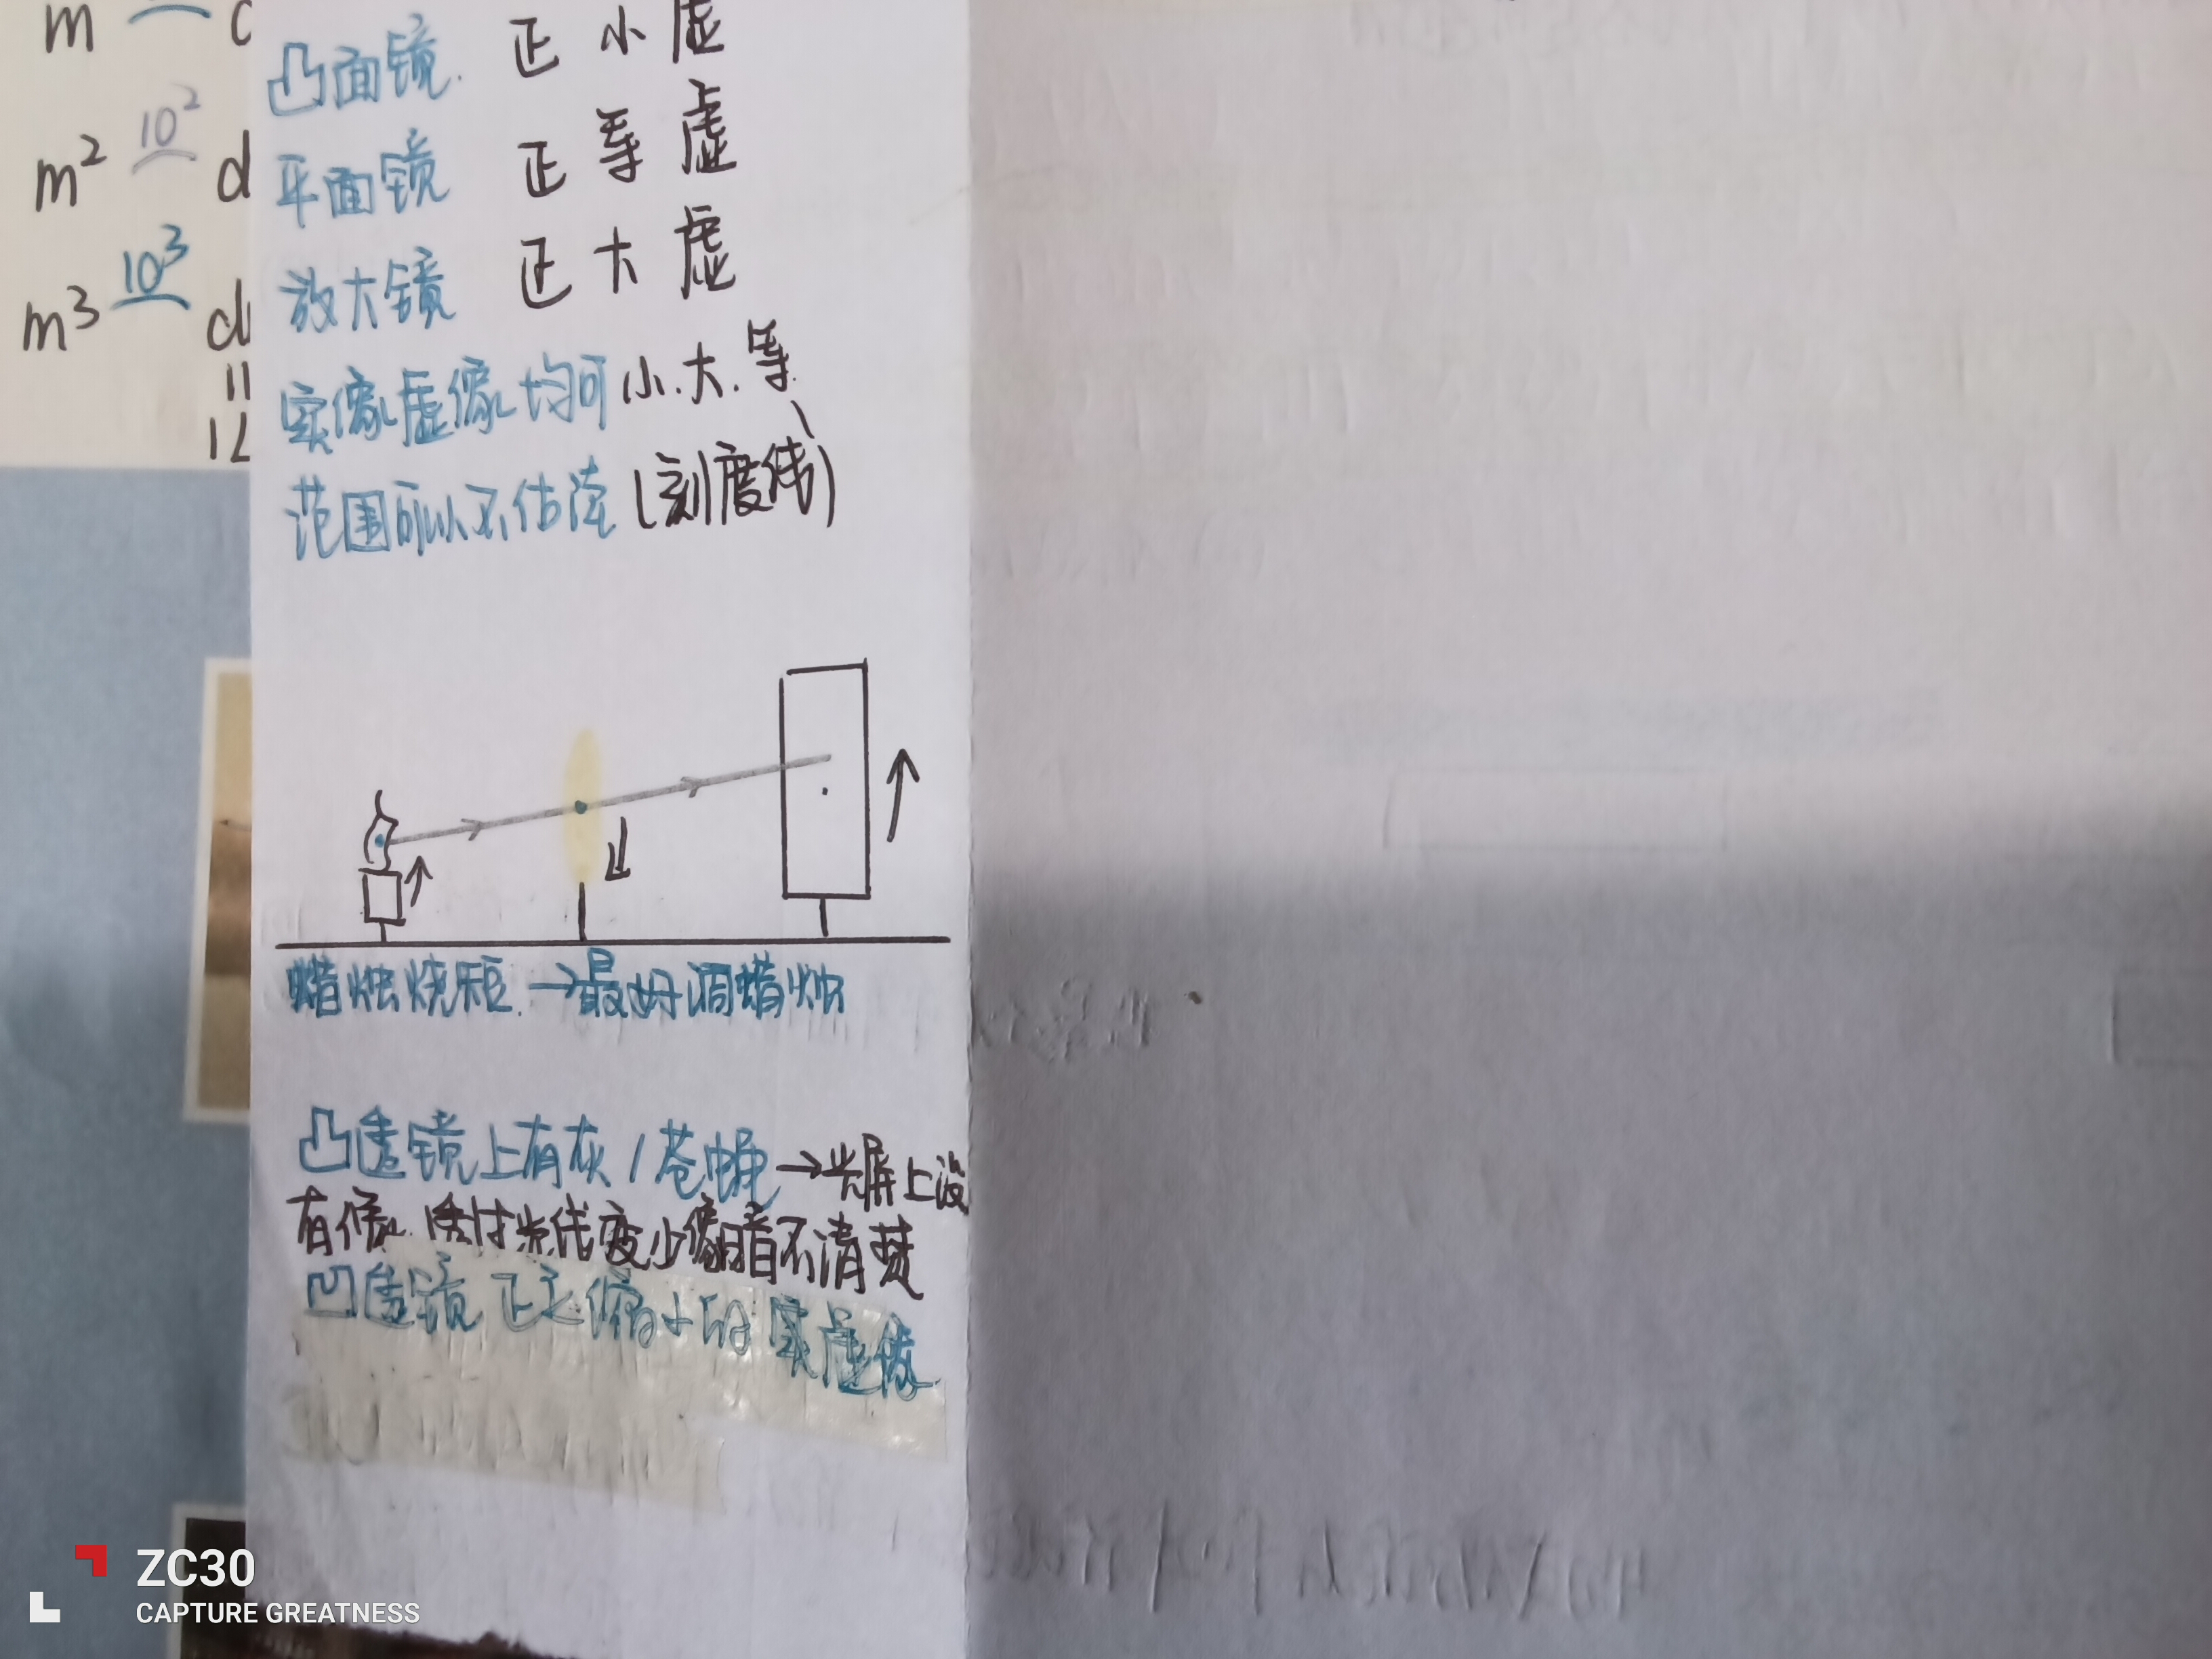 m c
m² 10² d
m³ 10³ d
凸面镜. 正 小 虚
平面镜 正 等 虚
放大镜 正 大 虚
实像虚像均可小.大.等.
范围所以不估读(刻度传)
蜡烛烧短.→最好调蜡烛
凸透镜上有灰/苍蝇→光屏上没
有像. 光线变少像暗不清楚
凹透镜 正立缩小的 虚像
ZC30
CAPTURE GREATNESS